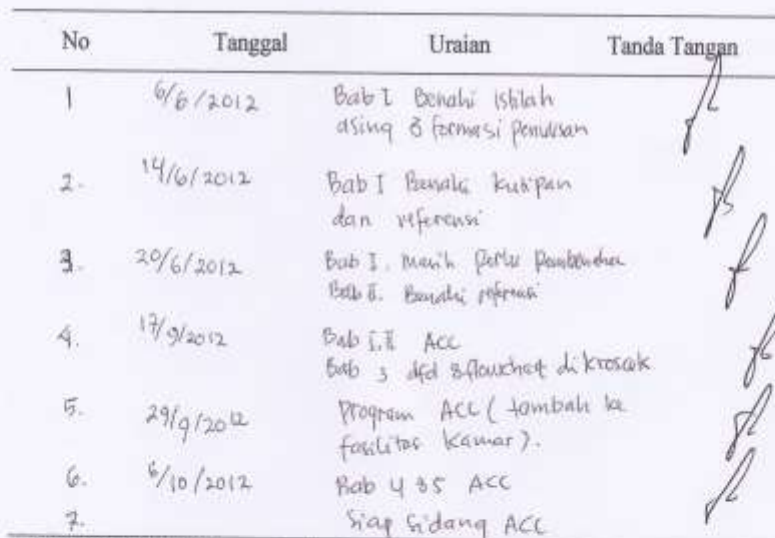 No Tanggal Uraian Tanda Tangan
1 6/6/2012 Bab I Benahi istilah
asing & formasi penulisan
2. 14/6/2012 Bab I Benahi kutipan
dan referensi
3. 20/6/2012 Bab I. masih perlu pembenahan
Bab II. Benahi referensi
4. 17/9/2012 Bab I.II ACC
Bab 3 dfd & flowchart dikroscek
5. 29/9/2012 Program ACC (tambah ke
fasilitas kamar).
6. 6/10/2012 Bab 4 & 5 ACC
7. Siap Sidang ACC